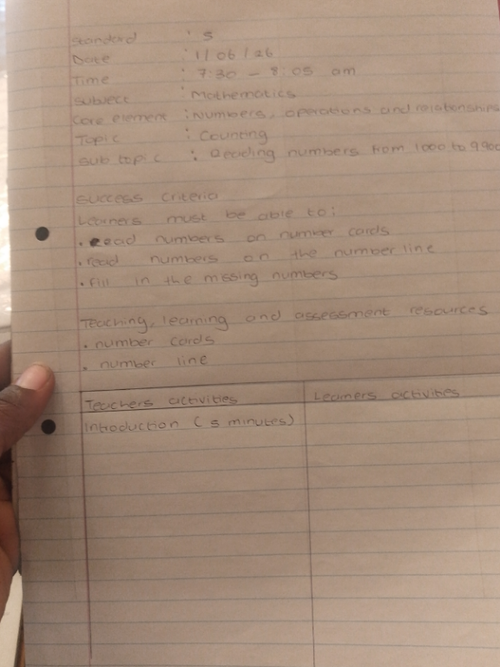 Standard : 3
Date : 1/06/26
Time : 7:30 – 8:05 am
Subject : Mathematics
Core element : Numbers, operations and relationships
Topic : Counting
Sub topic : Reading numbers from 1000 to
Success criteria
Learners must be able to:
• Read numbers on number cards
• read numbers on the number line
• fill in the missing numbers
Teaching, learning and assessment resources
• number cards
• number line
Teachers activities
Learners activities
Introduction (5 minutes)